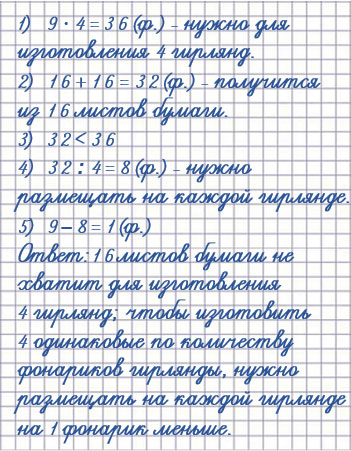 1) 9 · 4 = 36 (ф.) – нужно для
изготовления 4 гирлянд.
2) 16 + 16 = 32 (ф.) – получится
из 16 листов бумаги.
3) 32 < 36
4) 32 : 4 = 8 (ф.) – нужно
размещать на каждой гирлянде.
5) 9 – 8 = 1 (ф.)
Ответ: 16 листов бумаги не
хватит для изготовления
4 гирлянд; чтобы изготовить
4 одинаковые по количеству
фонариков гирлянды, нужно
размещать на каждой гирлянде
на 1 фонарик меньше.